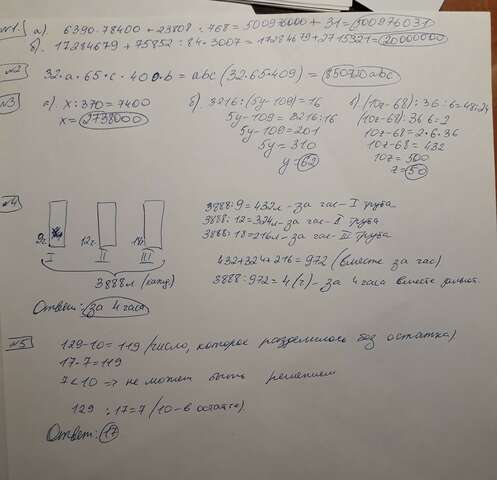 №1. а) 6390·78400 + 23808 : 768 = 500976000 + 31 = 500976031
б) 17284679 + 75852 : 84·3007 = 17284679 + 2715321 = 20000000
№2 32·a·65·c·409·b = abc(32·65·409) = 850720abc
№3 а). x : 370 = 7400
x = 2738000
б) 3216 : (5y - 109) = 16
5y - 109 = 3216 : 16
5y - 109 = 201
5y = 310
y = 62
в) (10z - 68) : 36 : 6 = 48 : 24
(10z - 68) : 36 : 6 = 2
10z - 68 = 2·6·36
10z - 68 = 432
10z = 500
z = 50
№4
9г. 12г 18г.
I II III
3888л
3888 : 9 = 432л - за час - I труба
3888 : 12 = 324л - за час - II труба
3888 : 18 = 216л - за час - III труба
432 + 324 + 216 = 972 (вместе за час)
3888 : 972 = 4 (ч) - за 4 часа вместе
Ответ: за 4 часа
№5 129 - 10 = 119 (число, которое разделилось без остатка)
17·7 = 119
7 < 10 => не может быть решением
129 : 17 = 7 (10 - в остатке)
Ответ: 17